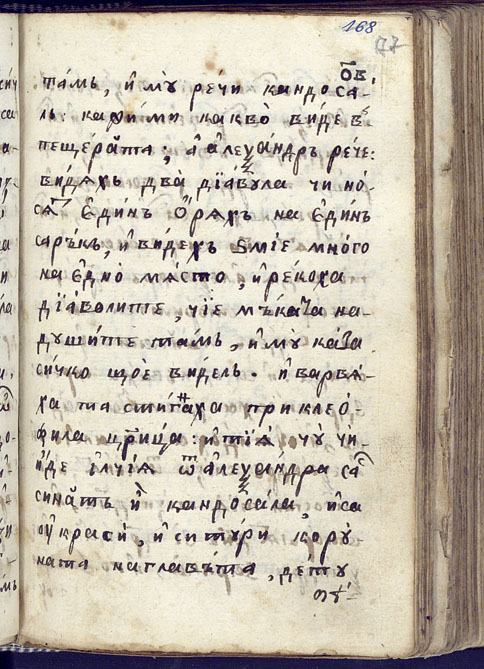 168
77
ѿв.
тамь, и҆ мꙋ̀ речи кандоса-
ль: кажи́ ми какво̀ ви́де в
пеще́рата; а҆ алеѯа́ндръ рече:
ви́дяхь два̀ дїа́вула чи но́-
сѧ є҆ди́нъ ѻ҆́ряхъ на є҆ди́нъ
саръкь, и҆ ви́дехъ ѕмїе мно́го
на є҆дно̀ мѧсто, и҆ реко́ха
дїаволите, чїе мъка́та на-
дꙋши́те тамь, и҆ мꙋ каза
си́чко що̀е ви́дель. и҆ варвѧ́-
ха та стигнаха при клео́-
фила цр҃и́ца: и҆ тїѧ̀ чꙋ̀ чи-
и҆́де і҆лчїѧ ѿ алеѯа́ндра са
синатъ и҆̀ кандоса́ла, и҆ са
ᲂу҆краси́, и҆ си тꙋ́ри корꙋ́
ната на глава́та, де́тꙋ